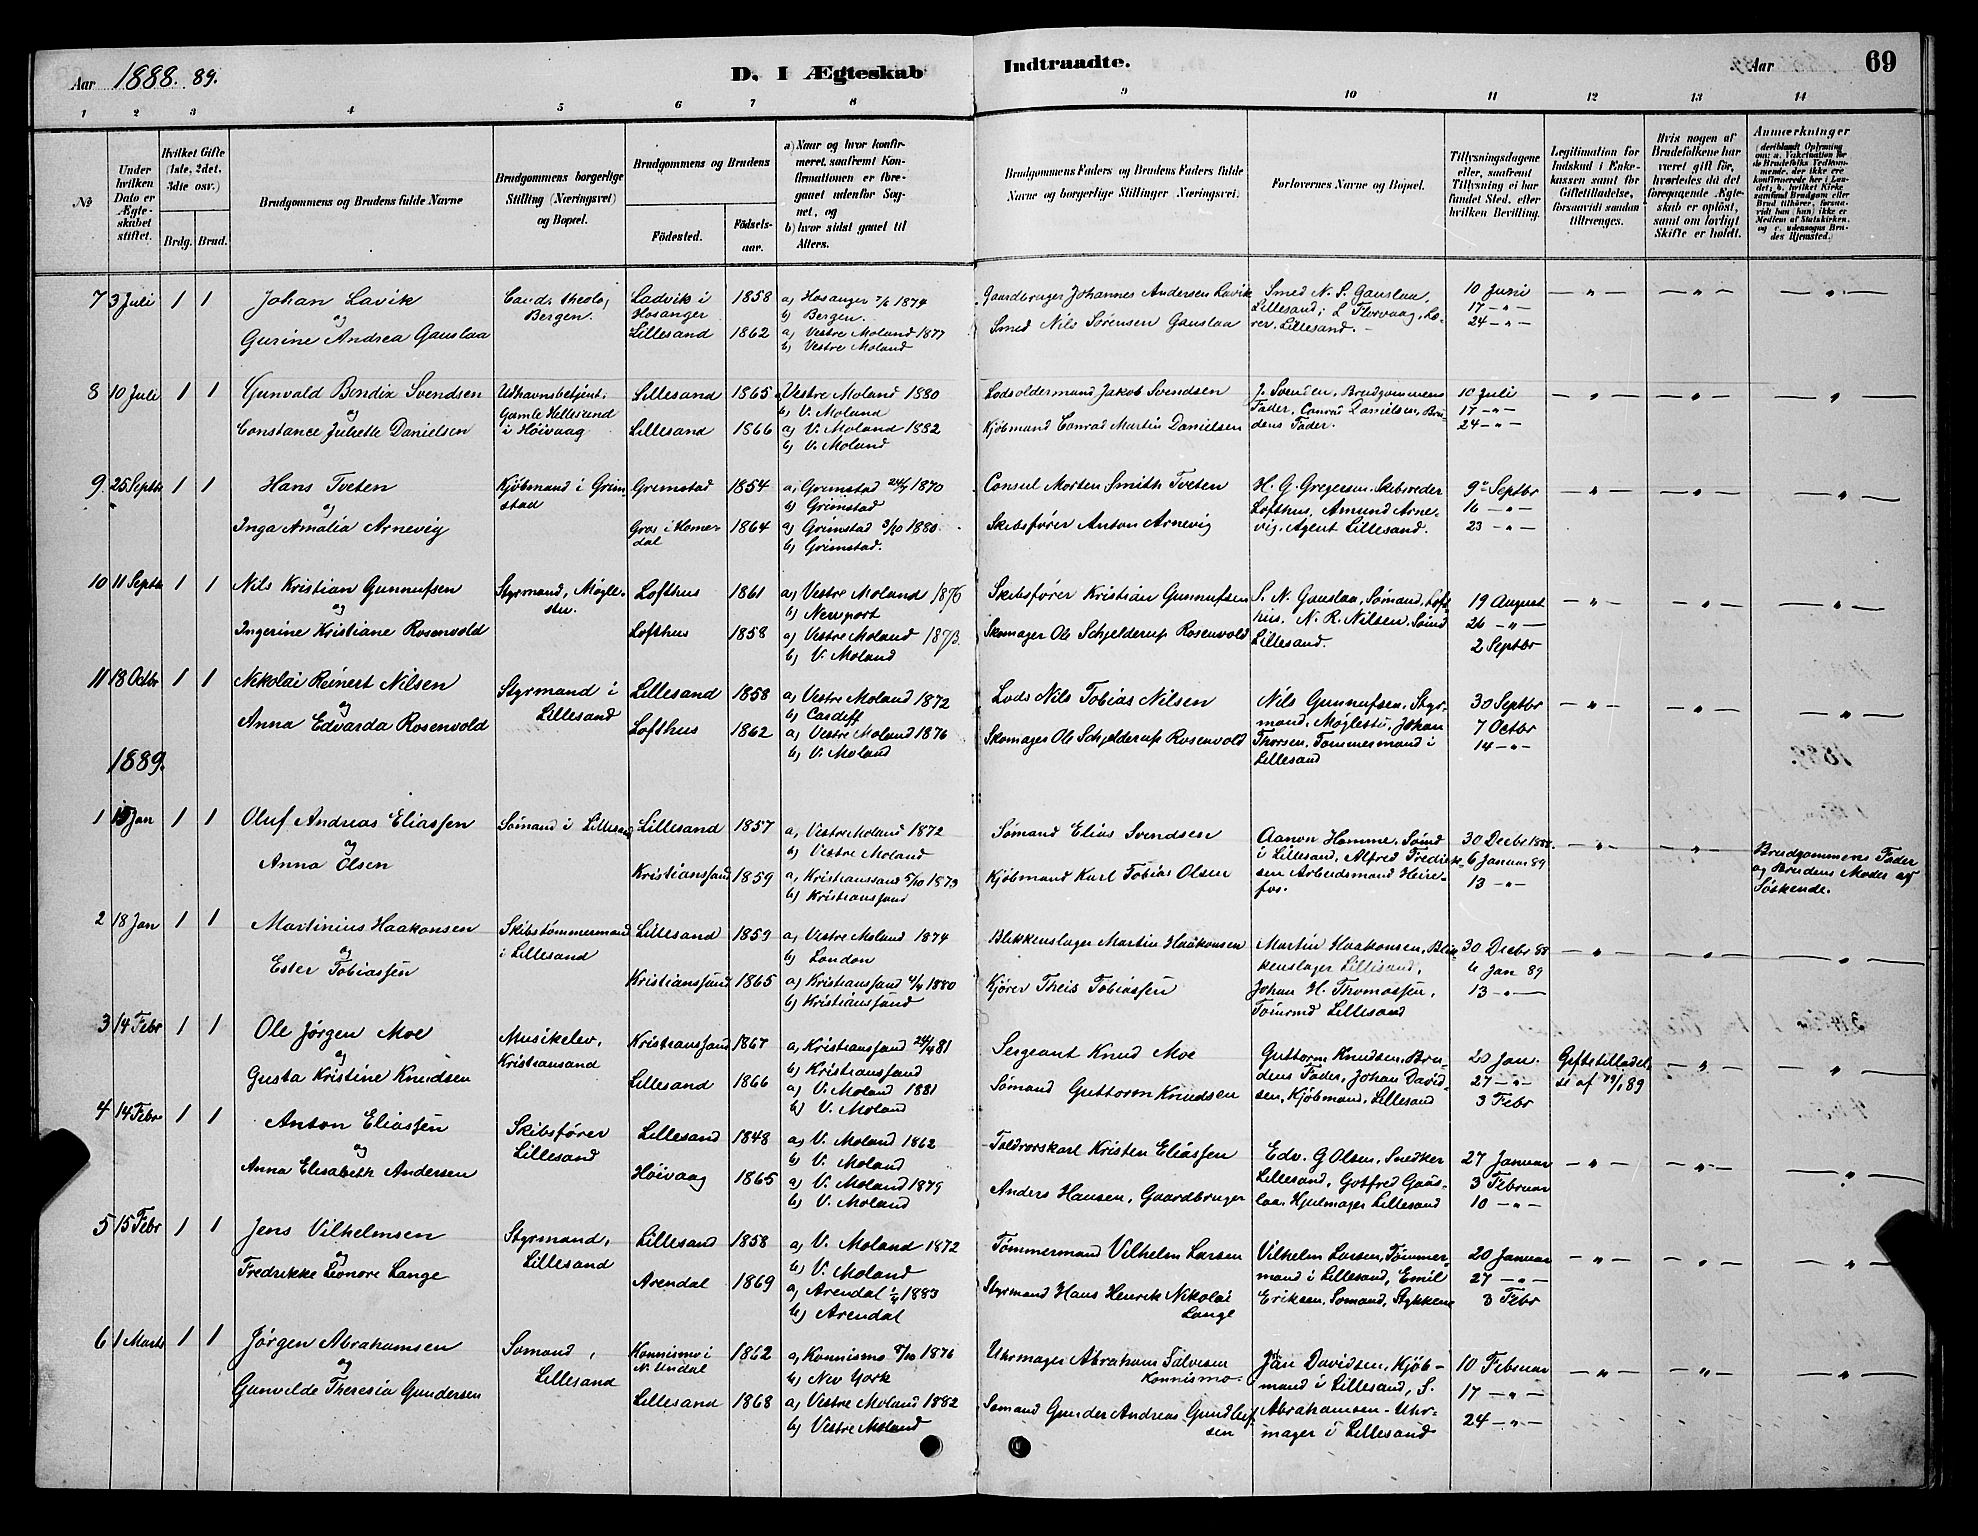 Aar 1888. 89.
D. I Ægteskab Indtraadte.
Aar
69
1 2 3 4 5 6 7 8 9 10 11 12 13 14
No
Under hvilken Dato er Ægteskabet stiftet.
Hvilket Gifte (1ste, 2det, 3die osv.)
Brdg. Brud.
Brudgommens og Brudens fulde Navne
Brudgommens borgerlige Stilling (Næringsvei) og Bopæl.
Brudgommens og Brudens
Födested.
Födselsaar.
a) Naar og hvor konfirmeret, saafremt Konfirmationen er foregaaet udenfor Sognet, og
b) hvor sidst gaaet til Alters.
Brudgommens Faders og Brudens Faders fulde Navne og borgerlige Stillinger (Næringsvei).
Forlovernes Navne og Bopæl.
Tillysningsdagene eller, saafremt Tillysning ei har fundet Sted, efter hvilken Bevilling.
Legitimation for Indskud i Enkekassen samt for Giftetilladelse, forsaavidt saadan tiltrænges.
Hvis nogen af Brudefolkene har været gift för, hvorledes da det foregaaende Ægteskab er oplöst, samt om lovligt Skifte er holdt.
Anmærkninger
7 3 Juli 1 1 Johan Lavik Cand. theol. Ladvik i 1858 a) Hosanger 7/6 1874 Gaardbruger Johannes Andersen Lavik Smed N. S. Gauslaa, 10 Juni
og Bergen. Hosanger b) Bergen. Lillesand; L Florvaag, Lærer, Lillesand. 17 — " —
Gurine Andrea Gauslaa Lillesand 1862 a) Vestre Moland 1877 Smed Nils Sørensen Gauslaa 24 — " —
b) Vestre Moland
8 10 Juli 1 1 Gunvald Bendix Svendsen Udhavnsbetjent, Lillesand 1865 Vestre Moland 1880 Lodsoldermand Jakob Svendsen J. Svendsen, Brudgommens 10 Juli
og Gamle Hellesund b) V. Moland Fader, Conrad Danielsen, Bru- 17 — " —
Constance Juliette Danielsen i Høivaag Lillesand 1866 a) V. Moland 1882 Kjøbmand Conrad Martin Danielsen dens Fader. 24 — " —
b) V. Moland
9. 25 Septbr 1 1 Hans Tveten Kjøbmand i Grim- Gremstad 1854 a) Grimstad 24/4 1870 Consul Morten Smith Tveten H. G. Gregersen, Skibsreder 9 Septbr
og stad b) Grimstad Lofthus, Amund Arne- 16 — " —
Inga Amalia Arnevig Groos i Homer- 1864 a) Grimstad 3/10 1880. Skibsfører Anton Arnevig vig, Agent Lillesand. 23 — " —
dal b) Grimstad.
10 11 Septb 1 1 Nils Kristian Gunnufsen Styrmand, Møgle- Lofthus 1861 a) Vestre Moland 1876 Skibsfører Kristian Gunnufsen S. N. Gauslaa, Sømand, Loft- 19 August
og stu. b) Newport hus, N. R. Nilsen, Sømd 26 — " —
Ingerine Kristiane Rosenvold Lofthus 1858 a) Vestre Moland 1873. Skomager Ole Schjelderup Rosenvold Lillesand. 2 Septbr
b) V. Moland
11 18 Octbr 1 1 Nikolai Reinert Nilsen Styrmand i Lillesand 1858 a) Vestre Moland 1872 Lods Nils Tobias Nilsen Nils Gunnufsen, Styr- 30 Septbr
og Lillesand b) Cardiff mand, Møglestu, Johan 7 Octbr
Anna Edvarda Rosenvold Lofthus 1862 a) Vestre Moland 1876 Skomager Ole Schjelderup Rosenvold Thorsen, Tømmermand i 14 — " —
b) V. Moland Lillesand
1889.
1 15 Jan 1 1 Oluf Andreas Eliassen Sømand i Lillesand Lillesand 1857 a) Vestre Moland 1872 Sømand Elias Svendsen Aanon Homme, Sømd 30 Decbr 1888.
og b) Vestre Moland i Lillesand, Alfred Fredrik- 6 Januar 89 Brudgommens Fader
Anna Olsen Kristianssand 1859 a) Kristianssand 5/10 1873 Kjøbmand Karl Tobias Olsen sen Arbeidsmand Heire- 13 — " — og Brudens Moder af
b) Kristianssand fos. Søskende.
2 18 Jan 1 1 Martinius Haakonsen Skibstømmermand Lillesand 1859 a) Vestre Moland 1874 Blikkenslager Martin Haakonsen Martin Haakonsen, Blik- 30 Decbr 88
og i Lillesand b) London kenslager Lillesand, 6 Jan 89
Ester Tobiassen Kristianssand 1865 a) Kristianssand 4/4 1880 Kjører Theis Tobiassen Johan H. Thomassen, 13 — " —
b) Kristianssand Tømrmd Lillesand
3 14 Febr 1 1 Ole Jørgen Moe Musikelev, Kristianssand 1867 a) Kristianssand 24/4 81 Sergeant Knud Moe Guttorm Knudsen, Bru- 20 Jan. Giftetilladel-
og Kristianssand b) Kristianssand dens Fader, Johan David- 27 — " — se af 19/1 89
Gusta Kristine Knudsen Lillesand 1866 a) V. Moland 1881 Sømand Guttorm Knudsen sen, Kjøbmand, Lillesand 3 Febr
b) V. Moland
4 14 Febr 1 1 Anton Eliassen Skibsfører Lillesand 1848 a) V. Moland 1862 Toldrorskarl Kristen Eliassen Edv. G Olsen, Snedker 27 Januar
og Lillesand b) V. Moland Lillesand, Gotfred Gaus- 3 Februar
Anna Elisabeth Andersen Höivaag 1865 a) V. Moland 1879 Anders Hansen, Gaardbruger laa, Hjulmager Lillesand 10 — " —
b) V. Moland
5 15 Febr 1 1 Jens Vilhelmsen Styrmand, Lillesand 1858 a) V. Moland 1872 Tømmermand Vilhelm Larsen Vilhelm Larsen, Tømmer- 20 Januar
og Lillesand b) V. Moland mand i Lillesand, Emil 27 — " —
Fredrikke Leonore Lange Arendal 1869 a) Arendal 1/4 1883 Styrmand Hans Henrik Nikolai Eriksen, Sømand, Stykkene 3 Febr
b) Arendal Lange
6 1 Marts 1 1 Jørgen Abrahamsen Sømand, Konnismo i 1862 a) Konnismo 8/10 1876 Uhrmager Abraham Salvesen Jan Davidsen, Kjøb- 10 Februar
og Lillesand N. Undal b) New York Konnismo. mand i Lillesand, S. 17 — " —
Gunvilde Theresia Gundersen Lillesand 1868 a) Vestre Moland 1882 Sømand Gunder Andreas Gundluf- Abrahamsen - Uhr- 24 — " —
b) Vestre Moland sen mager i Lillesand